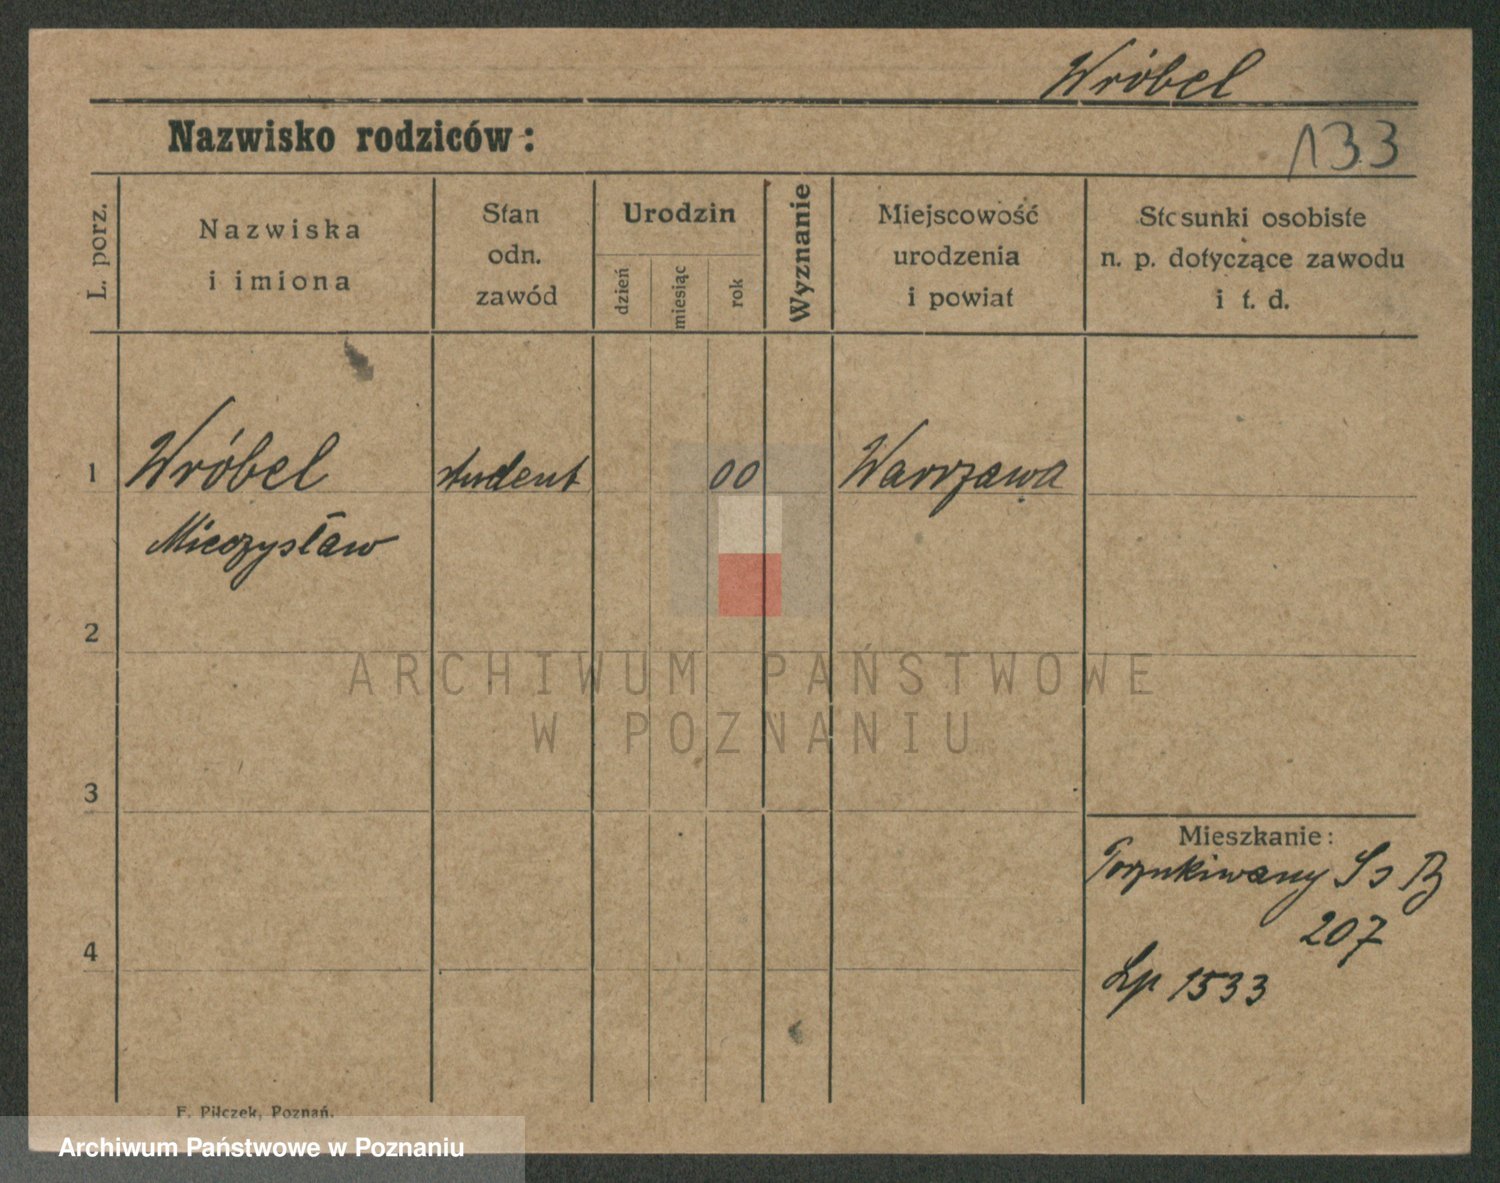 Wróbel
Nazwisko rodziców:
133
L. porz.
Nazwiska
i imiona
Stan
odn.
zawód
Urodzin
dzień
miesiąc
rok
Wyznanie
Miejscowość
urodzenia
i powiat
Stosunki osobiste
n. p. dotyczące zawodu
i t. d.
1
Wróbel
student
00
Warszawa
Mieczysław
2
ARCHIWUM PAŃSTWOWE
W POZNANIU
3
Mieszkanie:
Poszukiwany
207
4
Lp 1533
F. Pilczek, Poznań.
Archiwum Państwowe w Poznaniu